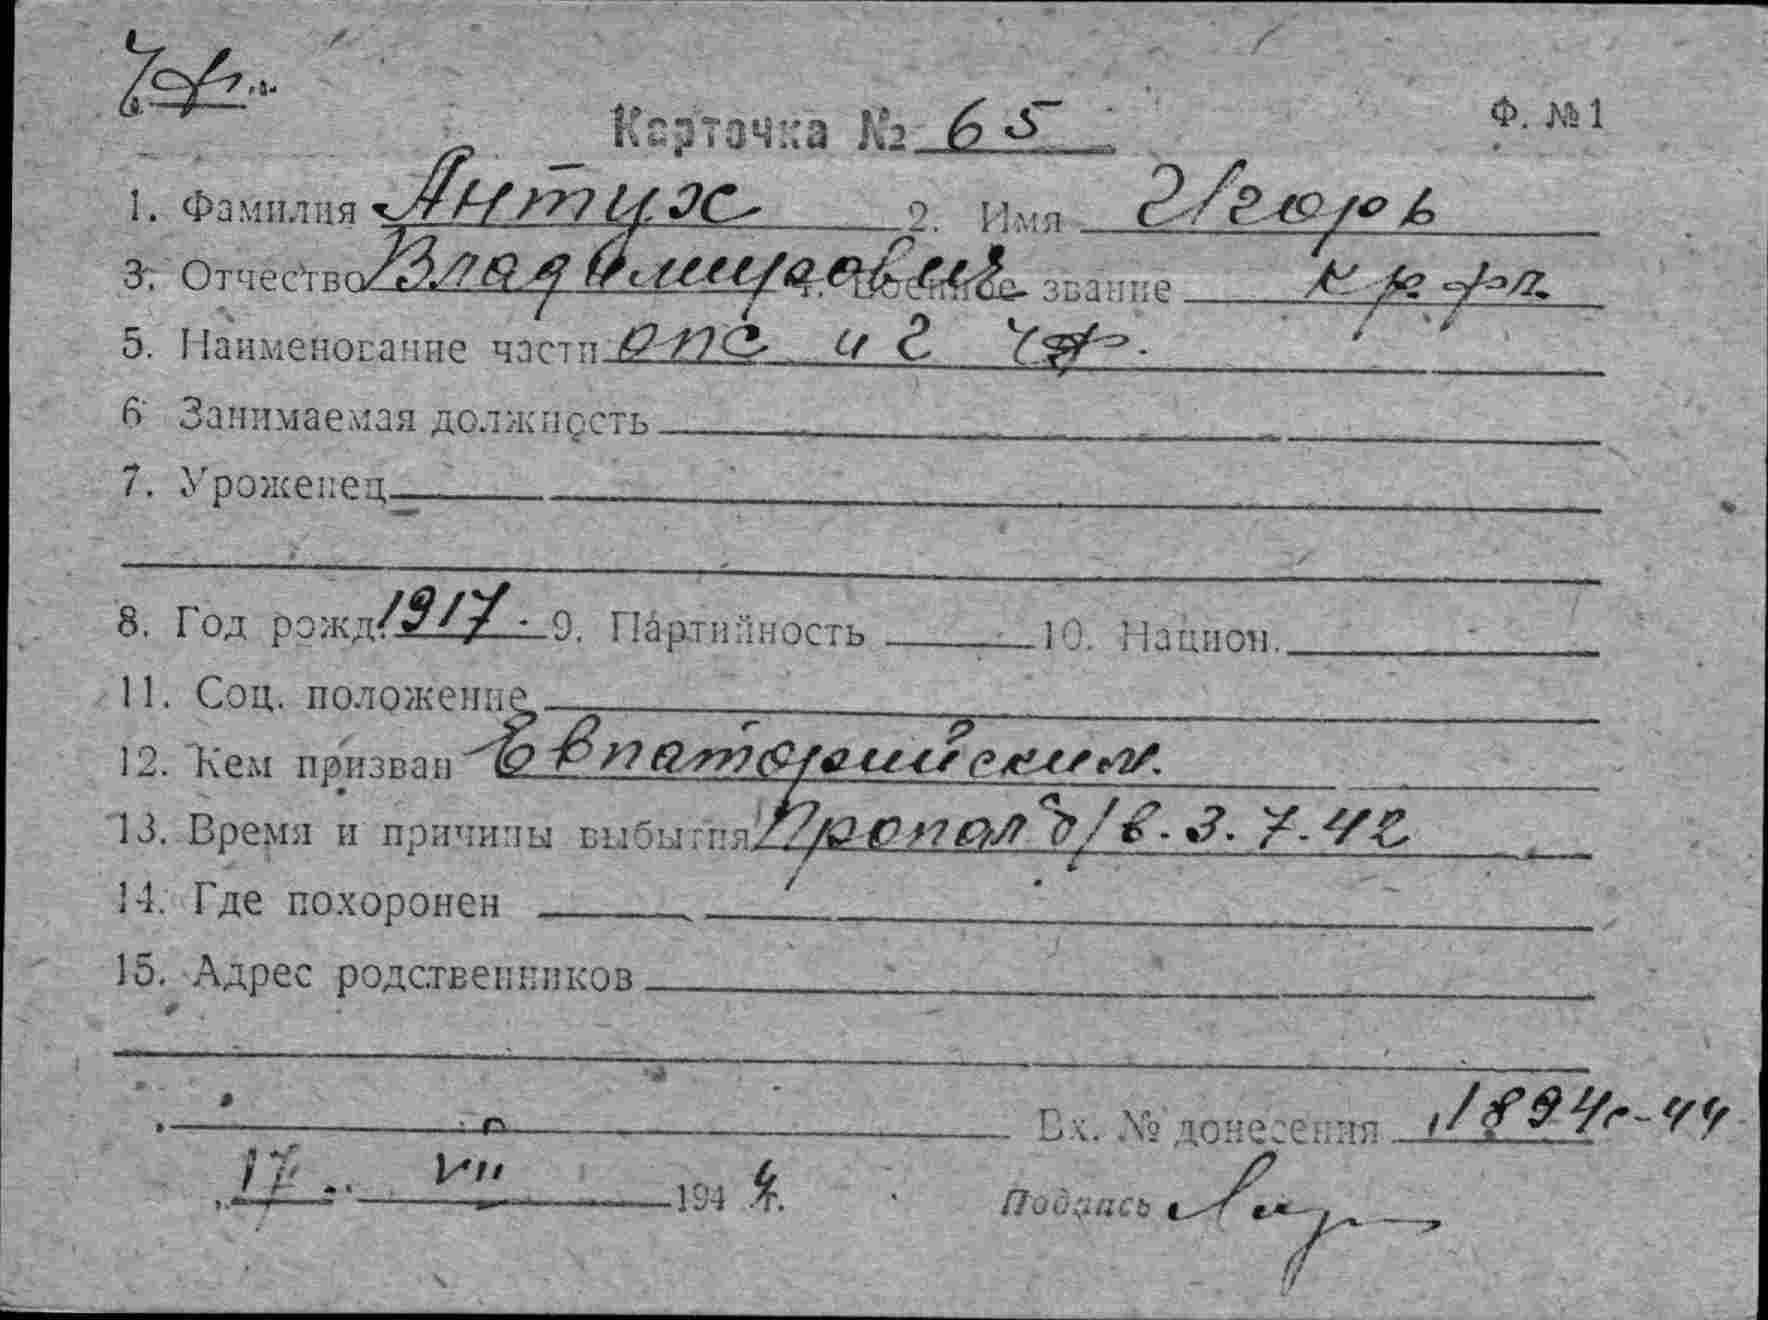 Чф.
Карточка № 65 Ф. №1
1. Фамилия Антух 2. Имя Игорь
3. Отчество Владимирович 4. Военное звание кр. фл.
5. Наименование части опс и г Чф.
6 Занимаемая должность
7. Уроженец
8. Год рожд. 1917. 9. Партийность 10. Национ.
11. Соц. положение
12. Кем призван Евпаторийским.
13. Время и причины выбытия Пропал б/в. 3.7.42
14. Где похоронен
15. Адрес родственников
Вх. № донесения 1894с-44
17 VII 1944г. Подпись